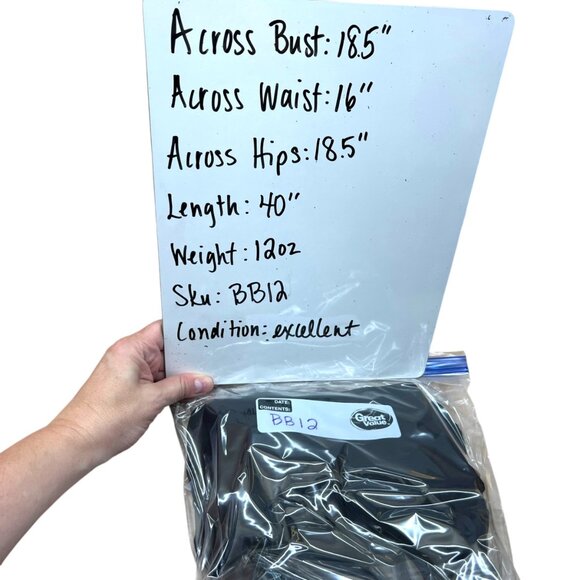 Across Bust: 18.5"
Across Waist: 16"
Across Hips: 18.5"
Length: 40"
Weight: 12oz
Sku: BB12
Condition: excellent
DATE:
CONTENTS:
BB12
Great
Value